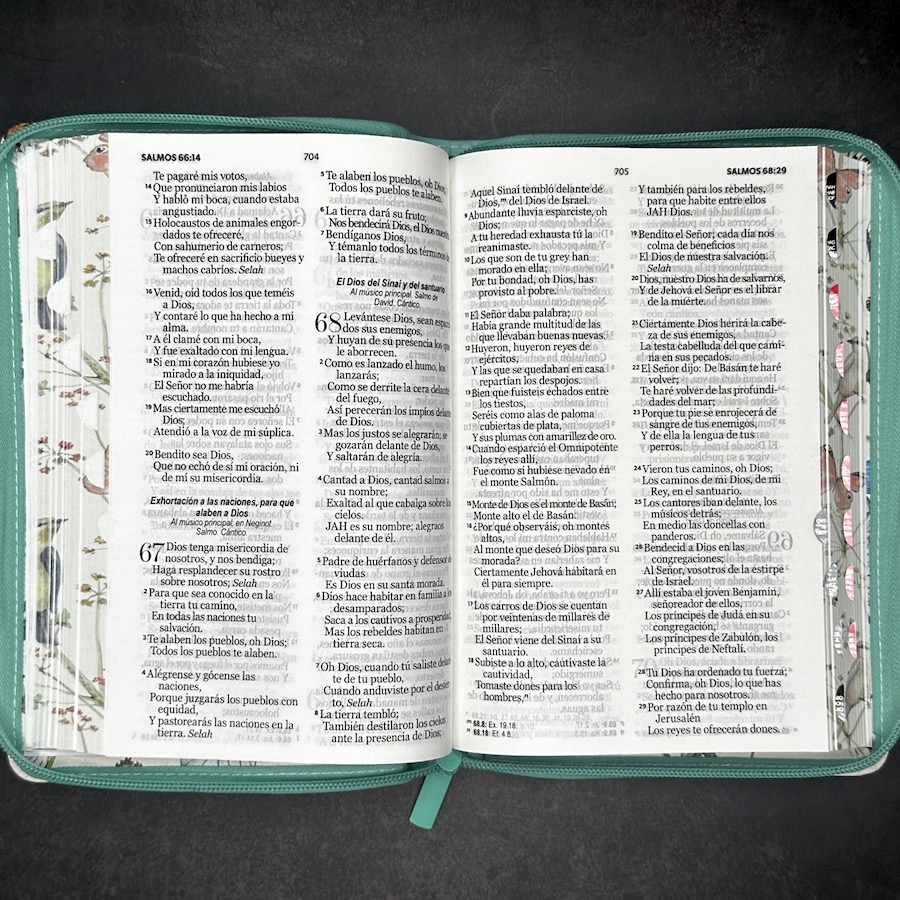 SALMOS 66:14
704
Te pagaré mis votos,
14 Que pronunciaron mis labios
Y habló mi boca, cuando estaba
angustiado.
15 Holocaustos de animales engor-
dados te ofreceré,
Con sahumerio de carneros;
Te ofreceré en sacrificio bueyes y
machos cabríos. Selah
16 Venid, oíd todos los que teméis
a Dios,
Y contaré lo que ha hecho a mi
alma.
17 A él clamé con mi boca,
Y fue exaltado con mi lengua.
18 Si en mi corazón hubiese yo
mirado a la iniquidad,
El Señor no me habría
escuchado.
19 Mas ciertamente me escuchó
Dios;
Atendió a la voz de mi súplica.
20 Bendito sea Dios,
Que no echó de sí mi oración, ni
de mí su misericordia.
Exhortación a las naciones, para que
alaben a Dios
Al músico principal; en Neginot.
Salmo. Cántico.
67 Dios tenga misericordia de
nosotros, y nos bendiga;
Haga resplandecer su rostro
sobre nosotros; Selah
2 Para que sea conocido en la
tierra tu camino,
En todas las naciones tu
salvación.
3 Te alaben los pueblos, oh Dios;
Todos los pueblos te alaben.
4 Alégrense y gócense las
naciones,
Porque juzgarás los pueblos con
equidad,
Y pastorearás las naciones en la
tierra. Selah
5 Te alaben los pueblos, oh Dios;
Todos los pueblos te alaben.
6 La tierra dará su fruto;
Nos bendecirá Dios, el Dios nuestro
7 Bendíganos Dios,
Y témanlo todos los términos de
la tierra.
El Dios del Sinaí y del santuario
Al músico principal. Salmo de
David. Cántico.
68 Levántese Dios, sean esparci-
dos sus enemigos,
Y huyan de su presencia los que
le aborrecen.
2 Como es lanzado el humo, los
lanzarás;
Como se derrite la cera delante
del fuego,
Así perecerán los impíos delante
de Dios.
3 Mas los justos se alegrarán; se
gozarán delante de Dios,
Y saltarán de alegría.
4 Cantad a Dios, cantad salmos a
su nombre;
Exaltad al que cabalga sobre los
cielos.
JAH es su nombre; alegraos
delante de él.
5 Padre de huérfanos y defensor de
viudas
Es Dios en su santa morada.
6 Dios hace habitar en familia a los
desamparados;
Saca a los cautivos a prosperidad;
Mas los rebeldes habitan en
tierra seca.
7 Oh Dios, cuando tú saliste delante
de tu pueblo,
Cuando anduviste por el desier-
to, Selah
8 La tierra tembló;
También destilaron los cielos
ante la presencia de Dios;
705
SALMOS 68:29
Aquel Sinaí tembló delante de
Dios, del Dios de Israel.
9 Abundante lluvia esparciste, oh
Dios;
A tu heredad exhausta tú la
reanimaste.
10 Los que son de tu grey han
morado en ella;
Por tu bondad, oh Dios, has
provisto al pobre.
11 El Señor daba palabra;
Había grande multitud de las
que llevaban buenas nuevas.
12 Huyeron, huyeron reyes de
ejércitos,
Y las que se quedaban en casa
repartían los despojos.
13 Bien que fuisteis echados entre
los tiestos,
Seréis como alas de paloma
cubiertas de plata,
Y sus plumas con amarillez de oro.
14 Cuando esparció el Omnipotente
los reyes allí,
Fue como si hubiese nevado en
el monte Salmón.
15 Monte de Dios es el monte de Basán;
Monte alto el de Basán.
16 ¿Por qué observáis, oh montes
altos,
Al monte que deseó Dios para su
morada?
Ciertamente Jehová habitará en
él para siempre.
17 Los carros de Dios se cuentan
por veintenas de millares de
millares;
El Señor viene del Sinaí a su
santuario.
18 Subiste a lo alto, cautivaste la
cautividad,
Tomaste dones para los
hombres,
68.8: Ex. 19.18.
68.18: Ef. 4.8.
Y también para los rebeldes,
para que habite entre ellos
JAH Dios.
19 Bendito el Señor; cada día nos
colma de beneficios
El Dios de nuestra salvación.
Selah
20 Dios, nuestro Dios ha de salvarnos,
Y de Jehová el Señor es el librar
de la muerte.
21 Ciertamente Dios herirá la cabe-
za de sus enemigos,
La testa cabelluda del que cami-
na en sus pecados.
22 El Señor dijo: De Basán te haré
volver;
Te haré volver de las profundi-
dades del mar;
23 Porque tu pie se enrojecerá de
sangre de tus enemigos,
Y de ella la lengua de tus
perros.
24 Vieron tus caminos, oh Dios;
Los caminos de mi Dios, de mi
Rey, en el santuario.
25 Los cantores iban delante, los
músicos detrás;
En medio las doncellas con
panderos.
26 Bendecid a Dios en las
congregaciones;
Al Señor, vosotros de la estirpe
de Israel.
27 Allí estaba el joven Benjamín,
señoreador de ellos,
Los príncipes de Judá en su
congregación,
Los príncipes de Zabulón, los
príncipes de Neftalí.
28 Tu Dios ha ordenado tu fuerza;
Confirma, oh Dios, lo que has
hecho para nosotros.
29 Por razón de tu templo en
Jerusalén
Los reyes te ofrecerán dones.